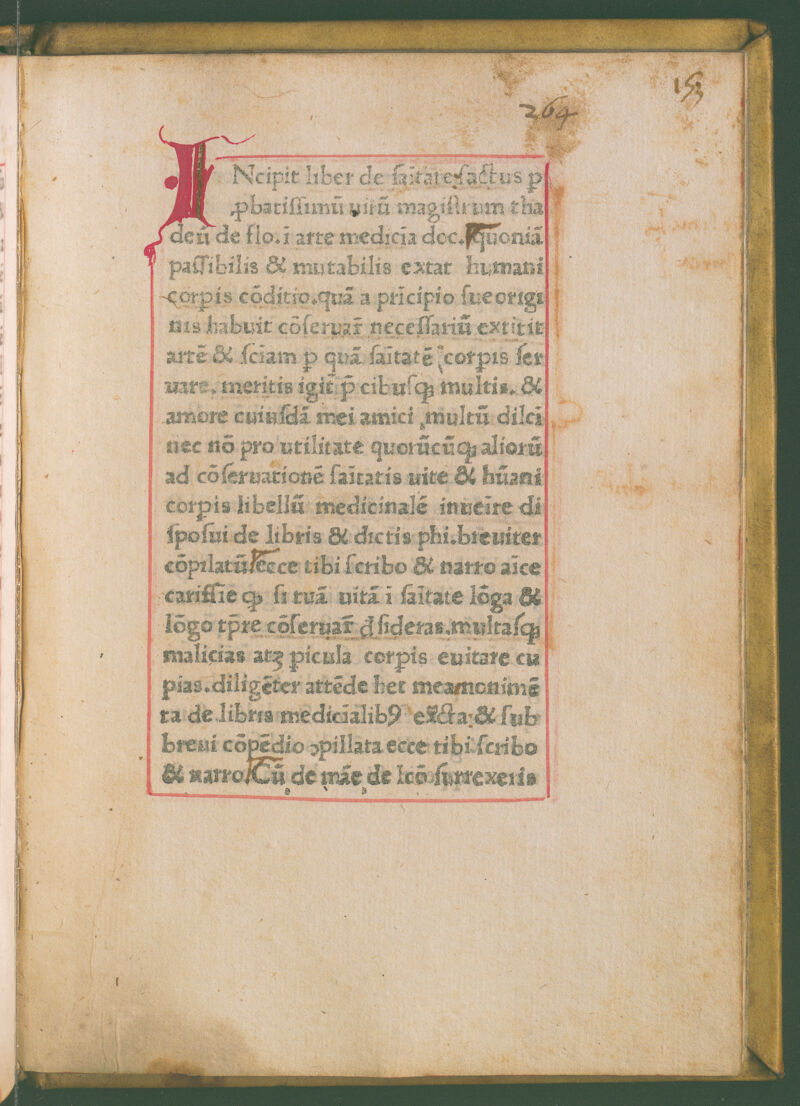 153
264
INcipit liber de sāitate factus p
ꝓbatissimū uirū magistrum tha
deū de flo. ī arte medicīa doc. Quoniā
passibilis & mutabilis extat humani
corpis cōditio. quā a prīcipio sue origi
nis habuit cōseruar̄ necessariū extitit
artē & sciam p quā sāitatē corpis ser
uare. meritis igit̄ p̄cibusqꝫ multis. &
amore cuiusdā mei amici multū dilci
nec nō pro utilitate quorūcūqꝫ aliorū
ad cōseruationē sāitatis uite & hūani
corpis libellū medicinalē inueīre di
sposui de libris & dictis phi. breuiter
cōpilatū. Ecce tibi scribo & narro aīce
carissīe ꝙ si tuā uitā ī sāitate lōga &
lōgo tp̄re cōseruar̄ dſideras. multasqꝫ
malicias atqꝫ picula corpis euitare cu
pias. diligēter attēde hec mea monimē
ta de libris medicīalibꝰ ex̄cta: & sub
breui cōpēdio ꝯpillata ecce tibi scribo
& narro. Cū de māe de lcō surrexeris